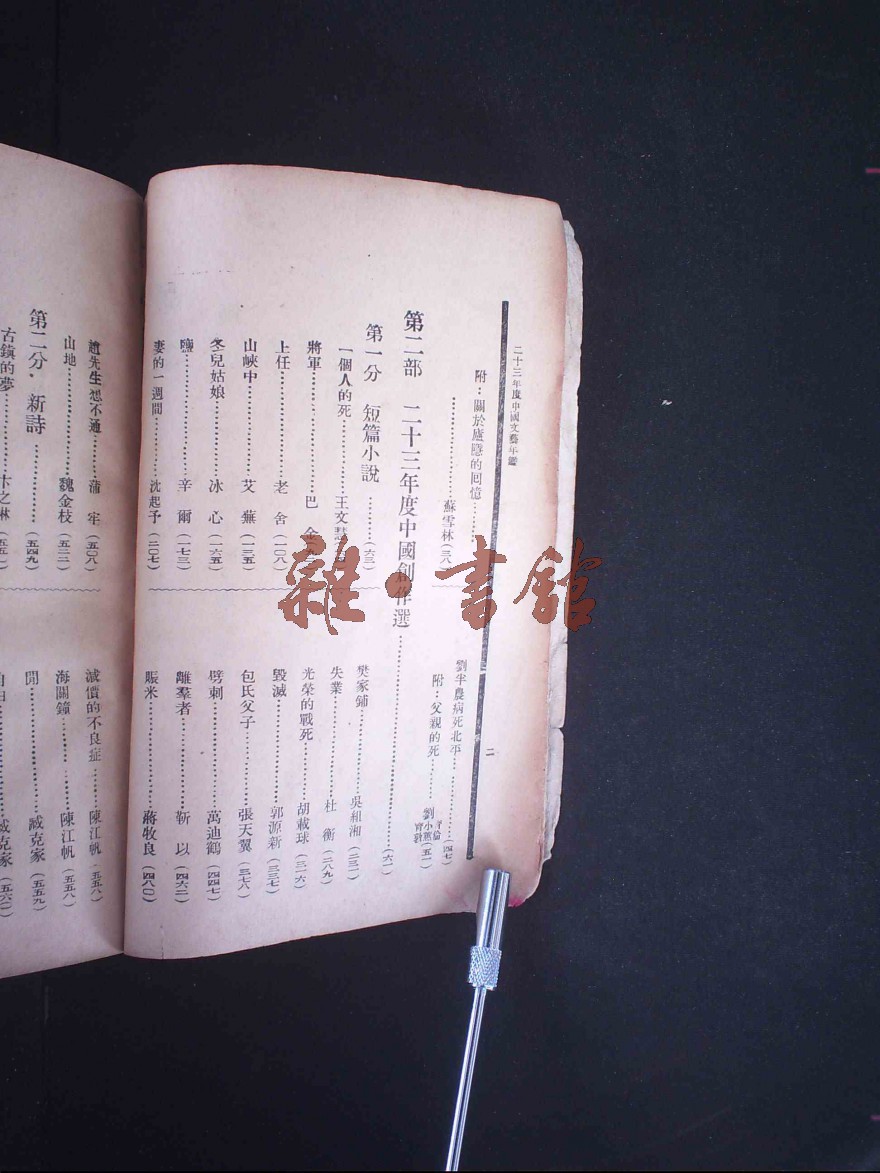 二十三年度中國文藝年鑑
二
附:關於廬隱的回憶………
………………蘇雪林(三八)
劉半農病死北平…………(四七)
附:父親的死……劉小蕙(五一)
第二部 二十三年度中國創作選……………………(六一)
第一分 短篇小說…………(六三)
一個人的死…………王文慧
將軍………………巴 金
上任………………老 舍(一〇八)
山峽中……………艾 蕪(一三五)
冬兒姑娘…………冰 心(一六五)
鹽…………………辛 爾(一七三)
妻的一週間………沈起予(二〇七)
樊家鋪……………吳組湘(二三一)
失業………………杜 衡(二八九)
光榮的戰死………胡載球(三一六)
毀滅………………郭源新(三三七)
包氏父子…………張天翼(三七八)
劈刺………………萬迪鶴(四四七)
離羣者……………靳 以(四六二)
賑米………………蔣牧良(四八〇)
趙先生想不通……蒲 牢(五〇八)
山地………………魏金枝(五二二)
第二分·新詩…………(五四九)
古鎮的夢…………卞之琳
減價的不良症……陳江帆(五五八)
海關鐘……………陳江帆(五五八)
閒…………………臧克家(五五九)
自由………………臧克家(五六二)
雜·書館